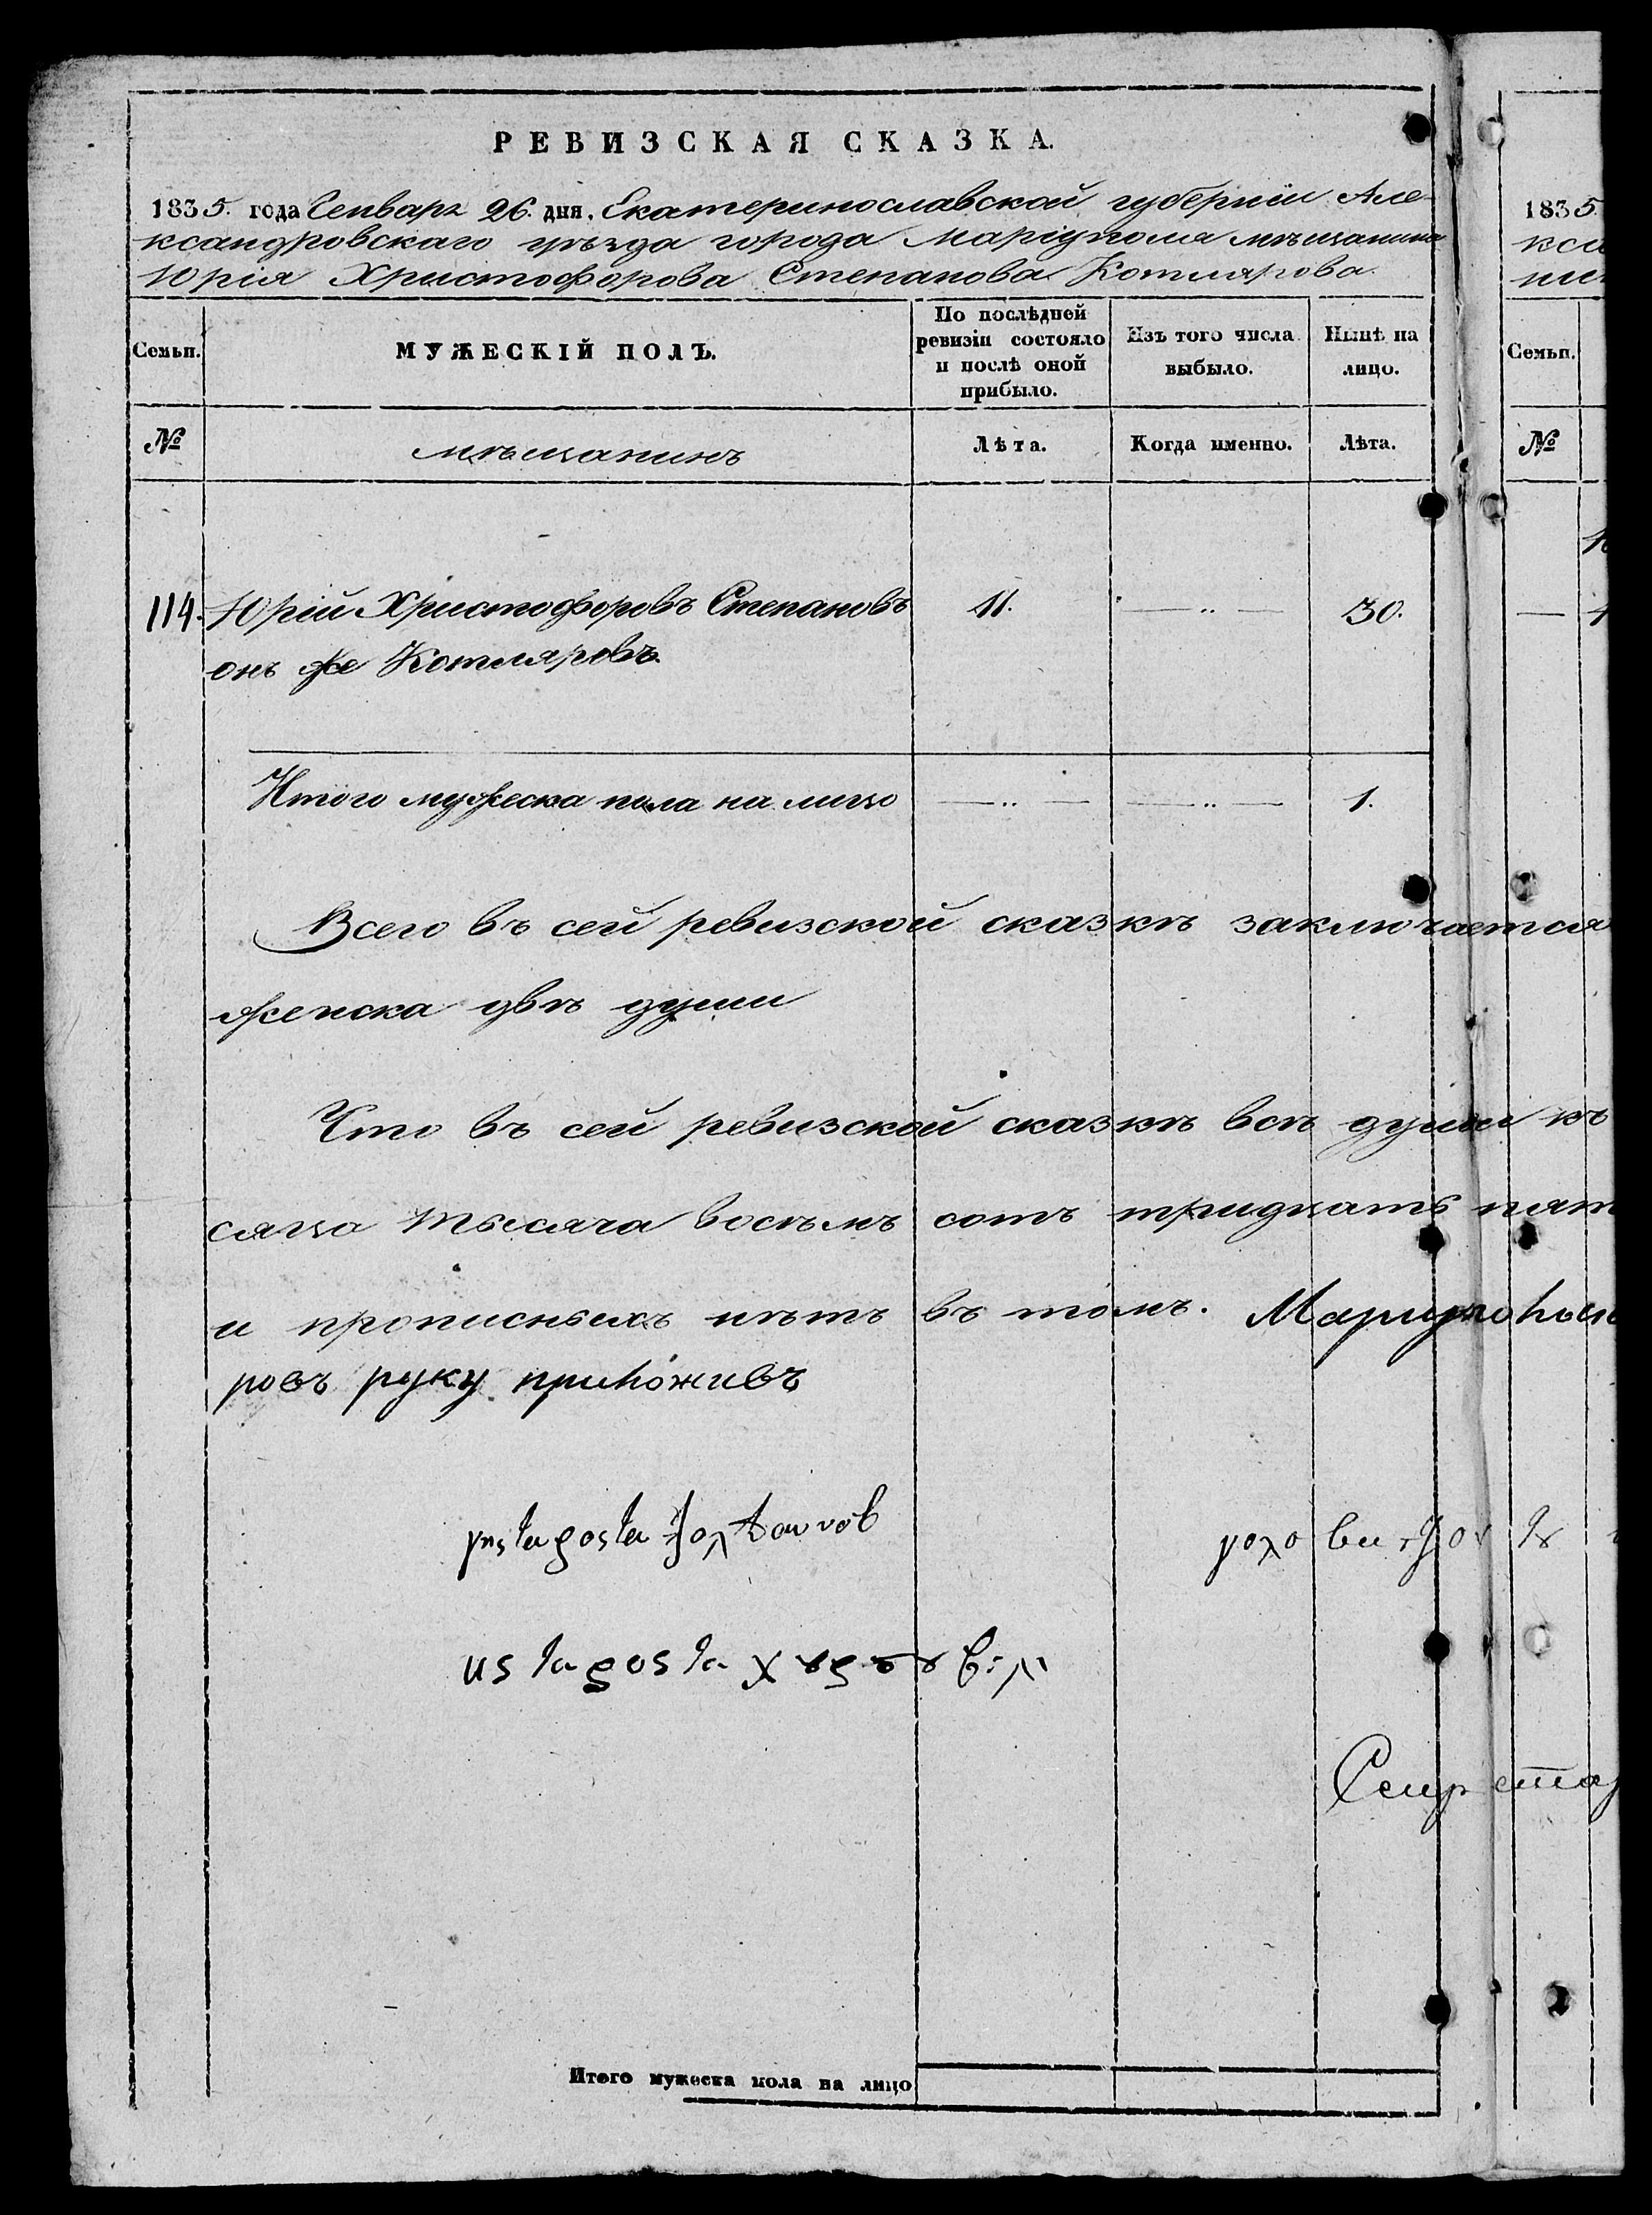 РЕВИЗСКАЯ СКАЗКА.
1835. года Генваря 26. дня. Екатеринославской губерніи Але-
ксандровскаго уѣзда города Маріуполя мѣщанина
Юрія Христофорова Степанова Котлярова.
Семьи.
МУЖЕСКІЙ ПОЛЪ.
По послѣдней
ревизіи состояло
и послѣ оной
прибыло.
Изъ того числа
выбыло.
Нынѣ на
лицо.
№
мѣщанинъ
Лѣта.
Когда именно.
Лѣта.
114. Юрій Христофоровъ Степановъ 11. — „ — 30.
онъ же Котляровъ.
Итого мужеска пола на лицо — „ — — „ — 1.
Всего въ сей ревизской сказкѣ заключается
женска двѣ души
Что въ сей ревизской сказкѣ всѣ души къ
сяца тысяча восемъ сотъ тридцать пят
и прописныхъ нѣтъ въ томъ.
ровъ руку приложивъ
Итого мужеска пола на лицо
1835.
Семьи.
№